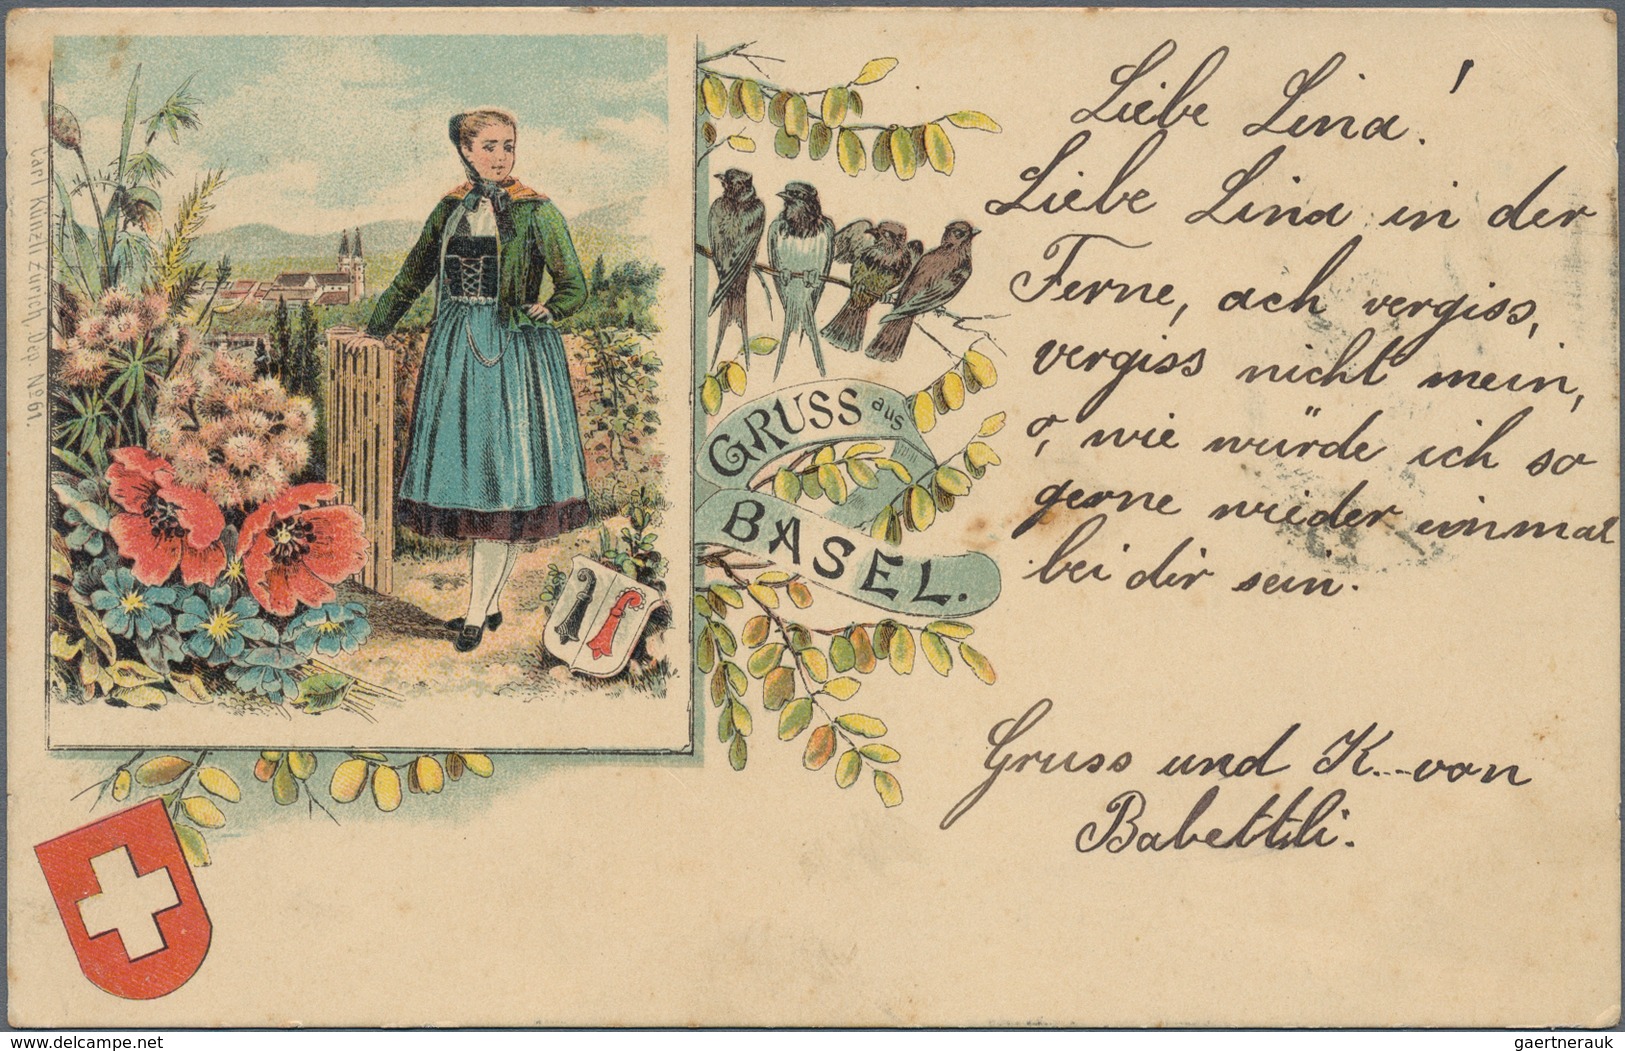 Carl Künzli Zürich, Dep. No 61.
GRUSS aus
BASEL.
Liebe Lina!
Liebe Lina in der
Ferne, ach vergiss,
vergiss nicht mein,
o, wie würde ich so
gerne wieder einmal
bei dir sein.
Gruss und K...von
Babettli.
www.delcampe.net
gaertnerauk